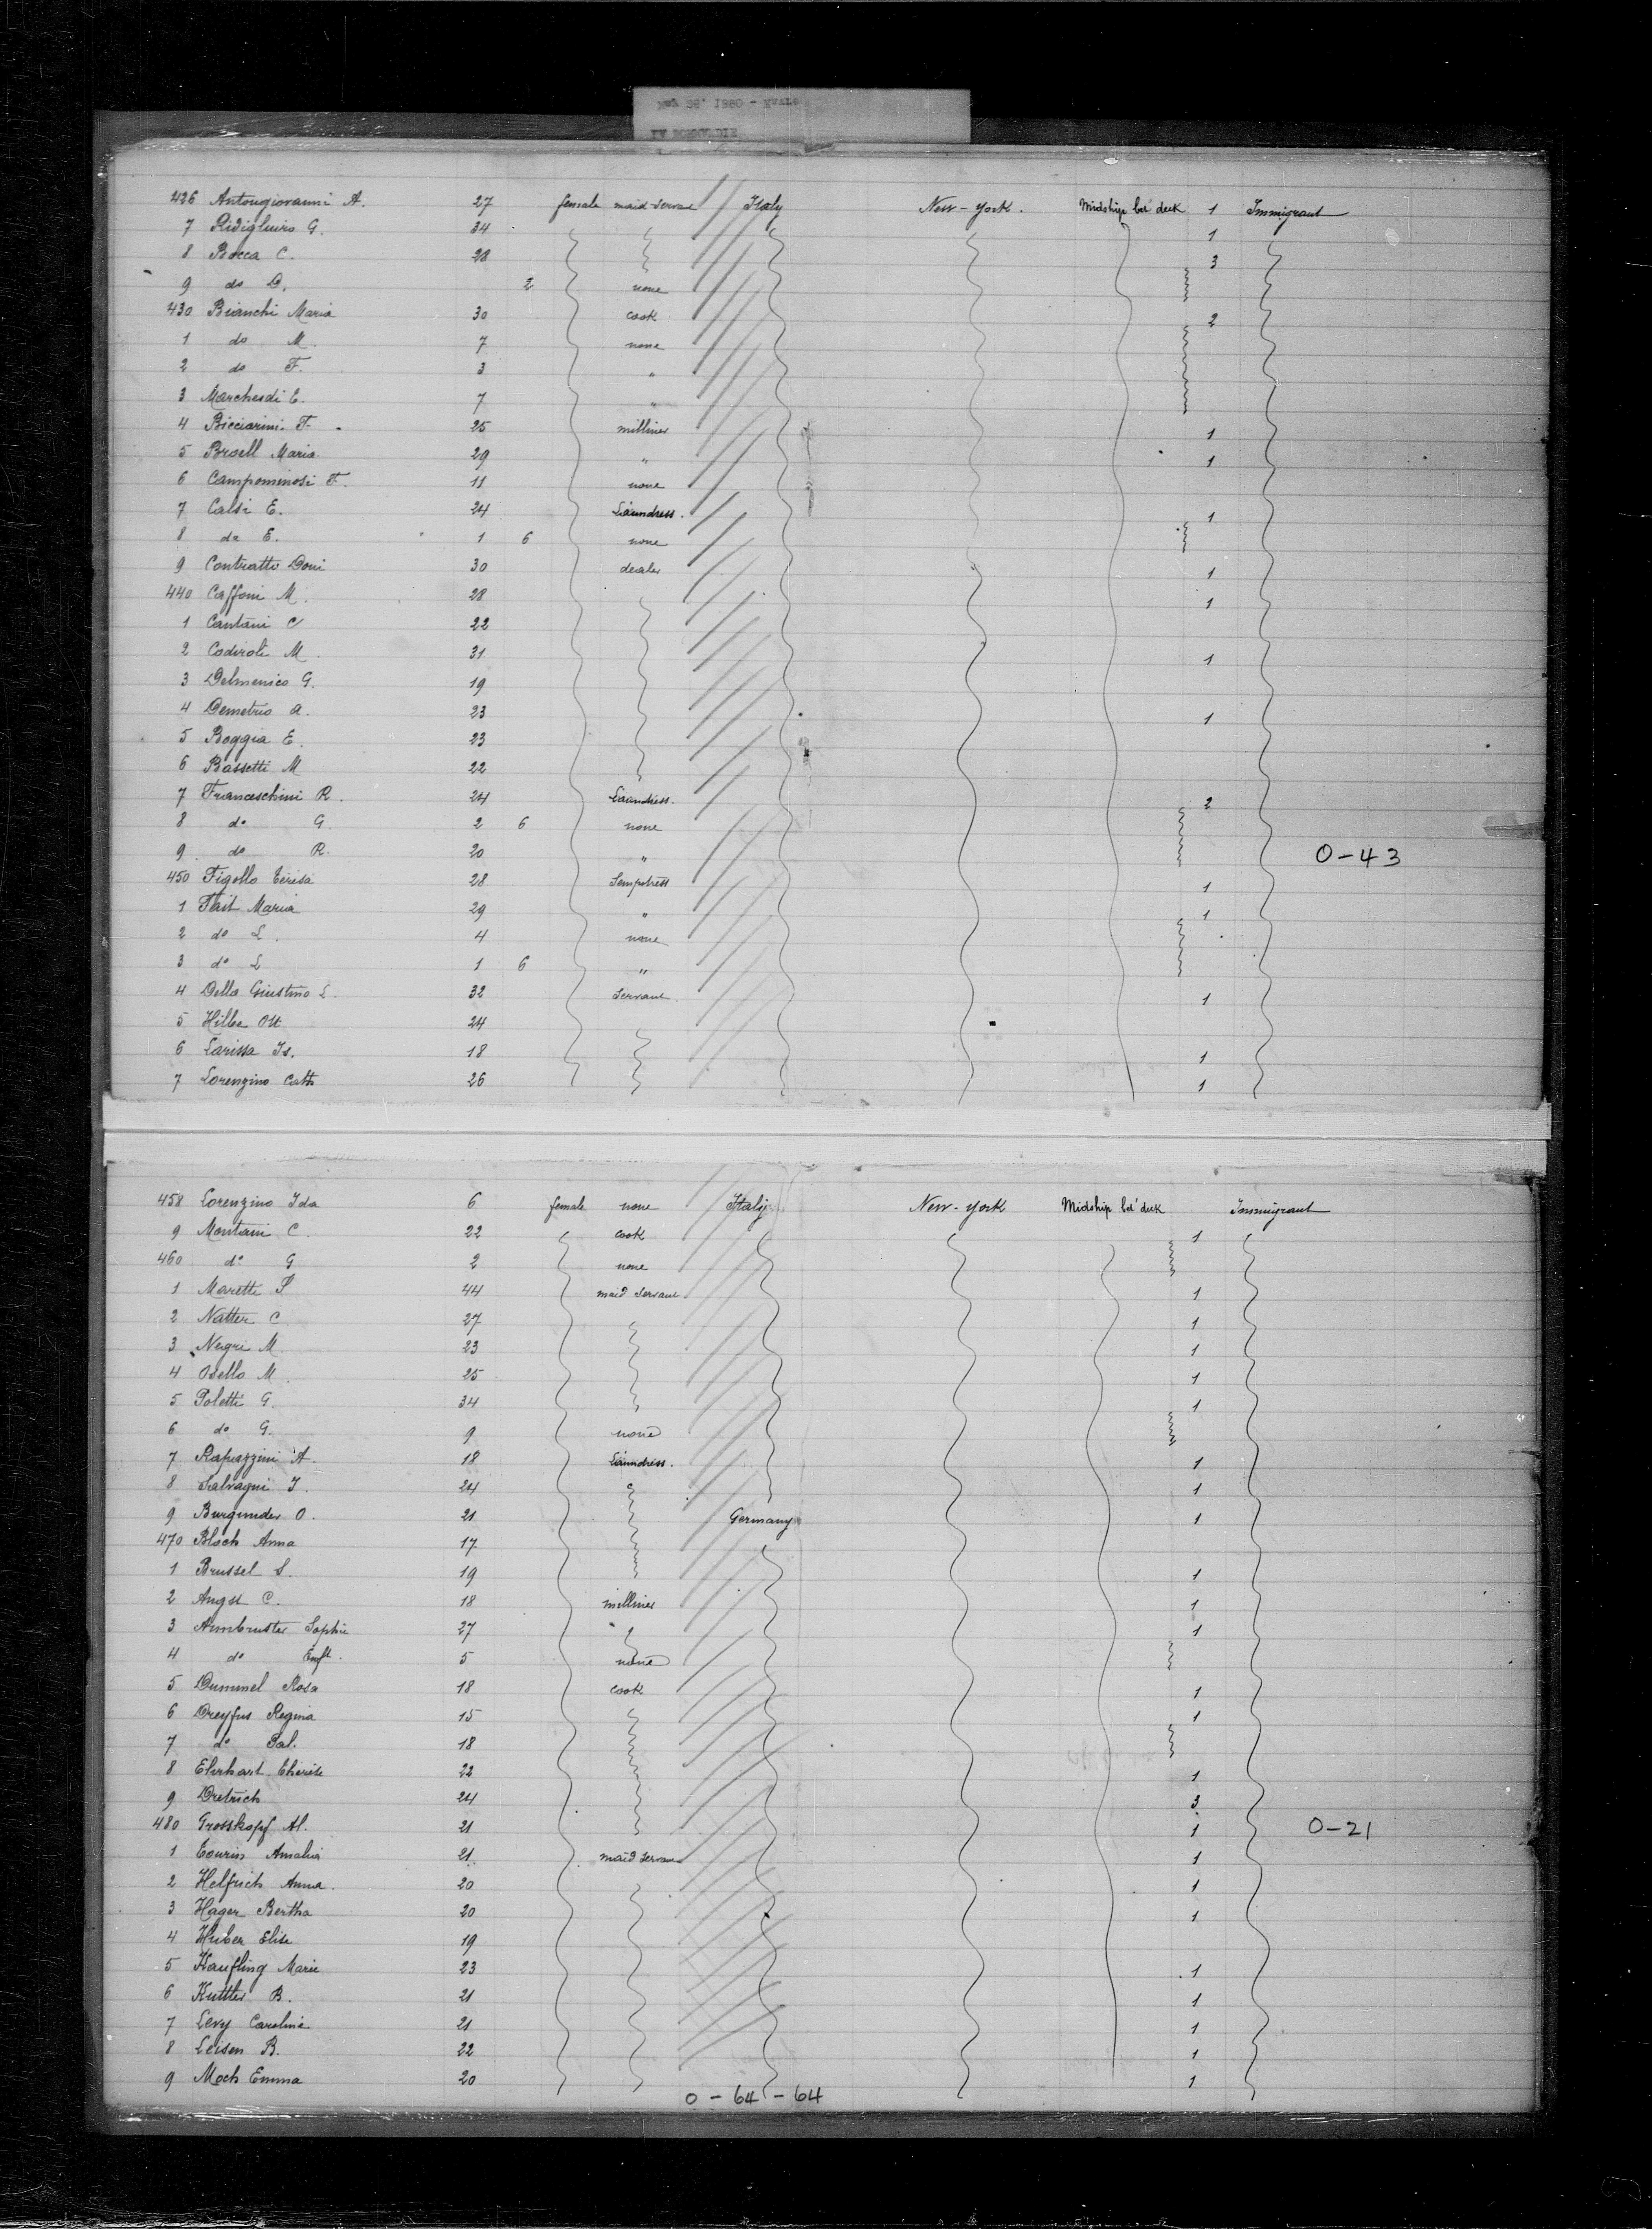 426 Antongiovanni A. 27 female maid servant Italy New-York. Midship bet' deck 1 Immigrant
7 G. 34 1
8 Bocca C. 28 3
9 do D. 2 none
430 Bianchi Maria 30 cook 2
1 do M. 7 none
2 do F. 3 "
3 Marchesdi E. 7 "
4 Bicciarini F. 25 milliner 1
5 Broell Maria 29 " 1
6 Campominosi F. 11 none
7 Calsi E. 24 Laundress. 1
8 do E. 1 6 none
9 Contratto Doni 30 dealer 1
440 Caffoni M. 28 1
1 Cantani C 22
2 Coderoti M. 31 1
3 Delmenico G. 19
4 Demetrio A. 23 1
5 Boggia E. 23
6 Bassetti M 22
7 Franceschini R. 24 Laundress. 2
8 do G. 2 6 none
9 do R. 20 " 0-43
450 Figollo Teresa 28 Semptress 1
1 Tait Maria 29 " 1
2 do L. 4 none
3 do L 1 6 "
4 Della Giustino L. 32 Servant 1
5 Hilbe Ott 24
6 Larissa Is. 18 1
7 Lorenzino Cath 26 1
458 Lorenzino Ida 6 female none Italy New-York Midship bet' deck Immigrant
9 Montani C. 22 cook 1
460 do G 2 none
1 Marette S 44 maid servant 1
2 Natter C 27 1
3 Negri M 23 1
4 Osello M. 25 1
5 Poletti G. 34 1
6 do G. 9 none
7 Rapuzzini A. 18 Laundress. 1
8 Salvagni I. 24 1
9 Burgunder O. 21 Germany 1
470 Bloch Anna 17
1 Brussel S. 19 1
2 Angst C. 18 milliner 1
3 Armbruster Sophie 27 1
4 do 5 none
5 Dummel Rosa 18 cook 1
6 Dreyfus Regina 15 1
7 do Sal. 18
8 Ehrhart Therese 22 1
9 Dietrich 24 3
480 Grosskopf Al. 21 1 0-21
1 Amalia 21 maid servant 1
2 Helfrich Anna. 20 1
3 Hager Bertha 20 1
4 Huber Elise 19
5 Kaufling Marie 23 1
6 Kuttler B. 21 1
7 Levy Caroline 21 1
8 Leisen B. 22 1
9 Moch Emma 20 1
0-64-64